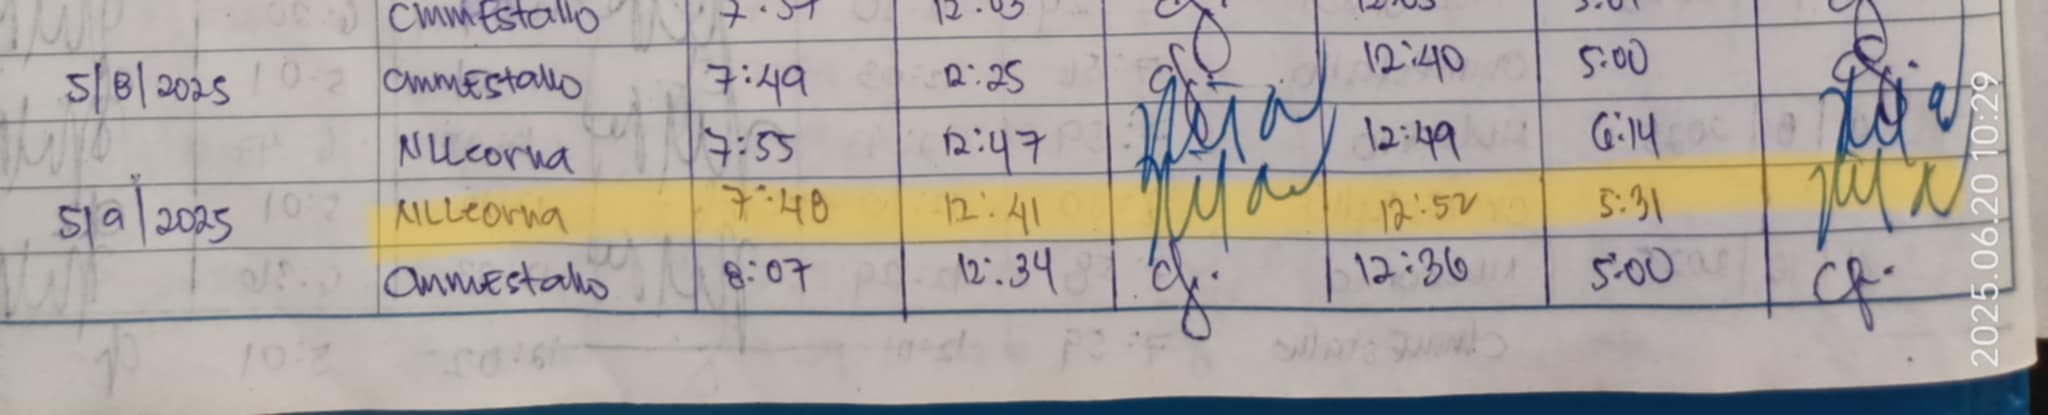 CMMEstallo 7:57 12:03
5/8/2025 CMMEstallo 7:49 12:25 12:40 5:00
NLLeorna 7:55 12:47 12:49 6:14
5/9/2025 NLLeorna 7:48 12:41 12:52 5:31
CMMEstallo 8:07 12:34 12:36 5:00
2025.06.20 10:29